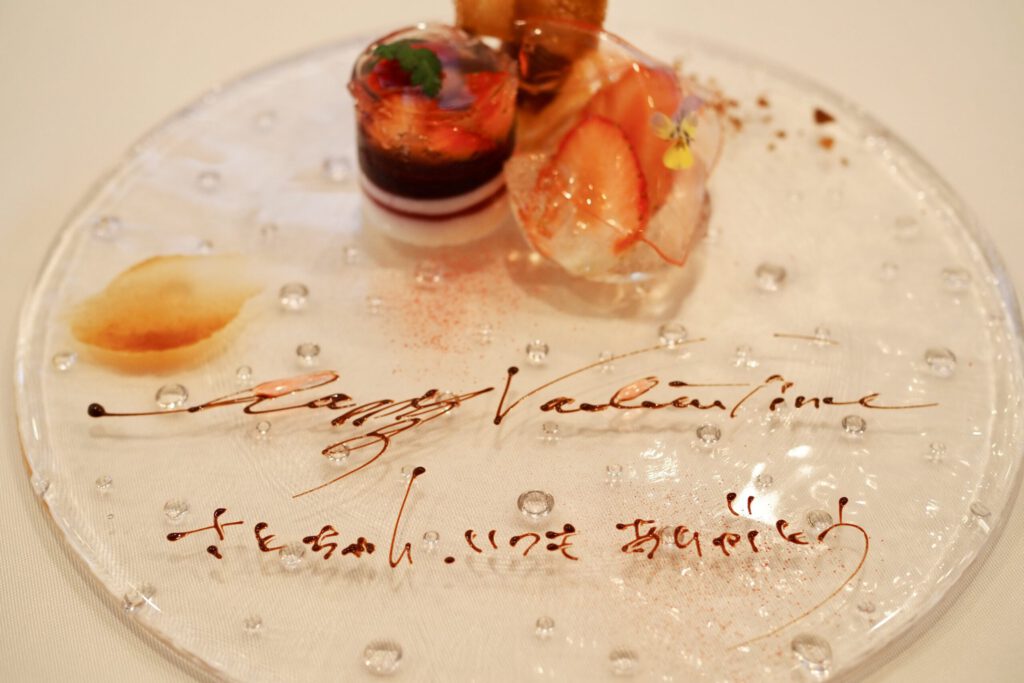 Happy Valentine
さとちゃん.いつも ありがとう